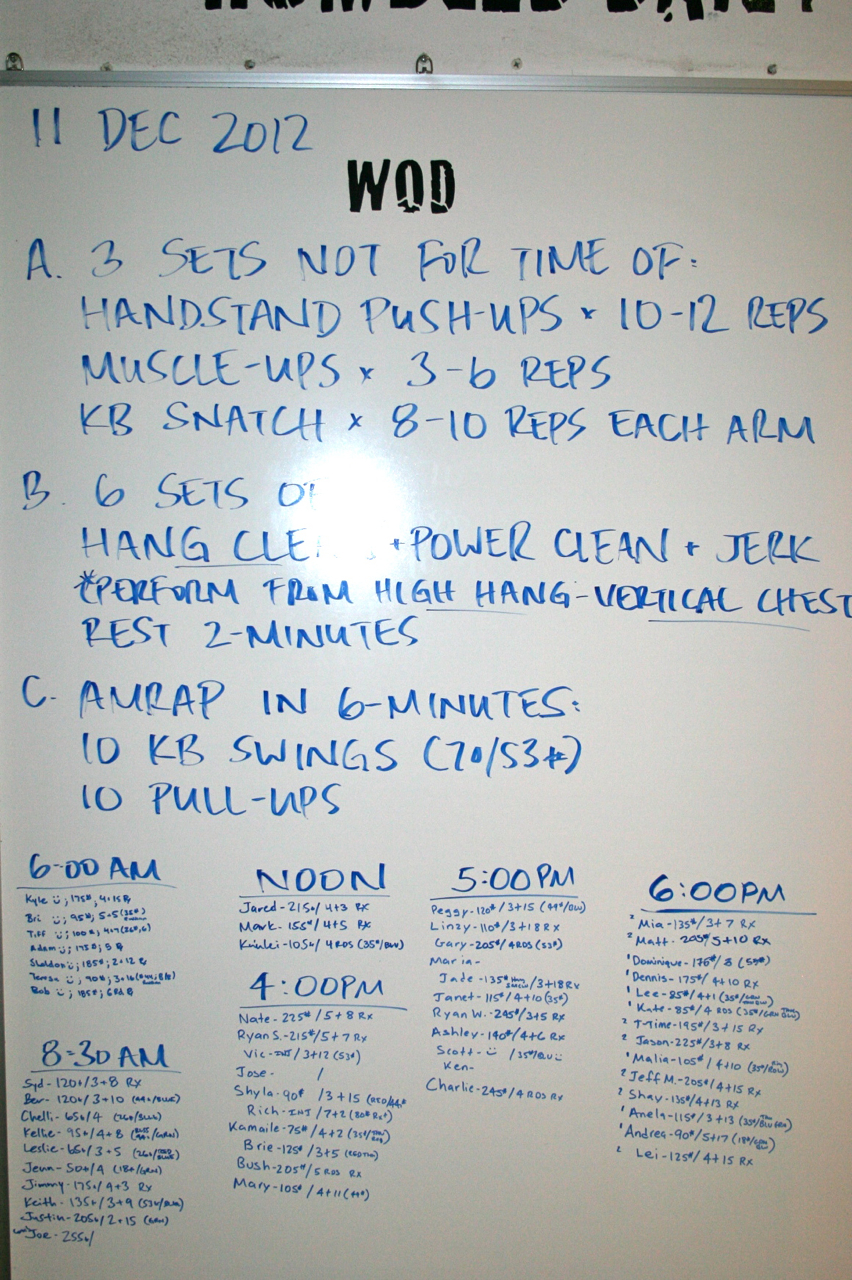 11 DEC 2012
WOD
A. 3 SETS NOT FOR TIME OF:
HANDSTAND PUSH-UPS x 10-12 REPS
MUSCLE-UPS x 3-6 REPS
KB SNATCH x 8-10 REPS EACH ARM
B. 6 SETS OF
HANG CLE + POWER CLEAN + JERK
*PERFORM FROM HIGH HANG-VERTICAL CHEST
REST 2-MINUTES
C. AMRAP IN 6-MINUTES:
10 KB SWINGS (70/53#)
10 PULL-UPS
6:00 AM
Kyle
Bri
Tiff
Adam
Sheldon
Bob
8:30 AM
Syd - 120#/3+8 Rx
Bev - 120#/3+10
Chelli - 65#/4
Kellie - 95#/4+8
Leslie - 65#/3+5
Jenn - 50#/4 (18#/GRN)
Jimmy - 175#/4+3 Rx
Keith - 135#/3+9
Justin - 205#/2+15
Joe - 255#/
NOON
Jared - 215#/4+3 Rx
Mark - 155#/4+5 Rx
105#/4 RDS (35#/BLU)
4:00PM
Nate - 225#/5+8 Rx
Ryan S. - 215#/5+7 Rx
Vic - INT/3+12 (53#)
Jose - /
Shyla - 90#/3+15
Rich - INT/7+2
Kamaile - 75#/4+2
Brie - 125#/3+5
Bush - 205#/5 RDS Rx
Mary - 105#/4+11 (44#)
5:00PM
Peggy - 120#/3+15 (44#/BLU)
Linzy - 110#/3+18 Rx
Gary - 205#/4 RDS (53#)
Maria -
Jade - 135#/3+18 Rx
Janet - 115#/4+10 (35#)
Ryan W. - 245#/3+5 Rx
Ashley - 140#/4+6 Rx
Scott - /35#/BLU
Ken -
Charlie - 245#/4 RDS Rx
6:00PM
2 Mia - 135#/3+7 Rx
2 Matt - 205#/5+10 Rx
1 Dominique - 175#/8 (53#)
1 Dennis - 175#/4+10 Rx
1 Lee - 85#/4+1
1 Kate - 85#/4 RDS
2 T-Time - 195#/3+15 Rx
2 Jason - 225#/3+8 Rx
1 Malia - 105#/4+10
2 Jeff M. - 205#/4+15 Rx
2 Shay - 135#/4+13 Rx
1 Anela - 115#/3+13
1 Andrea - 90#/5+17
2 Lei - 125#/4+15 Rx